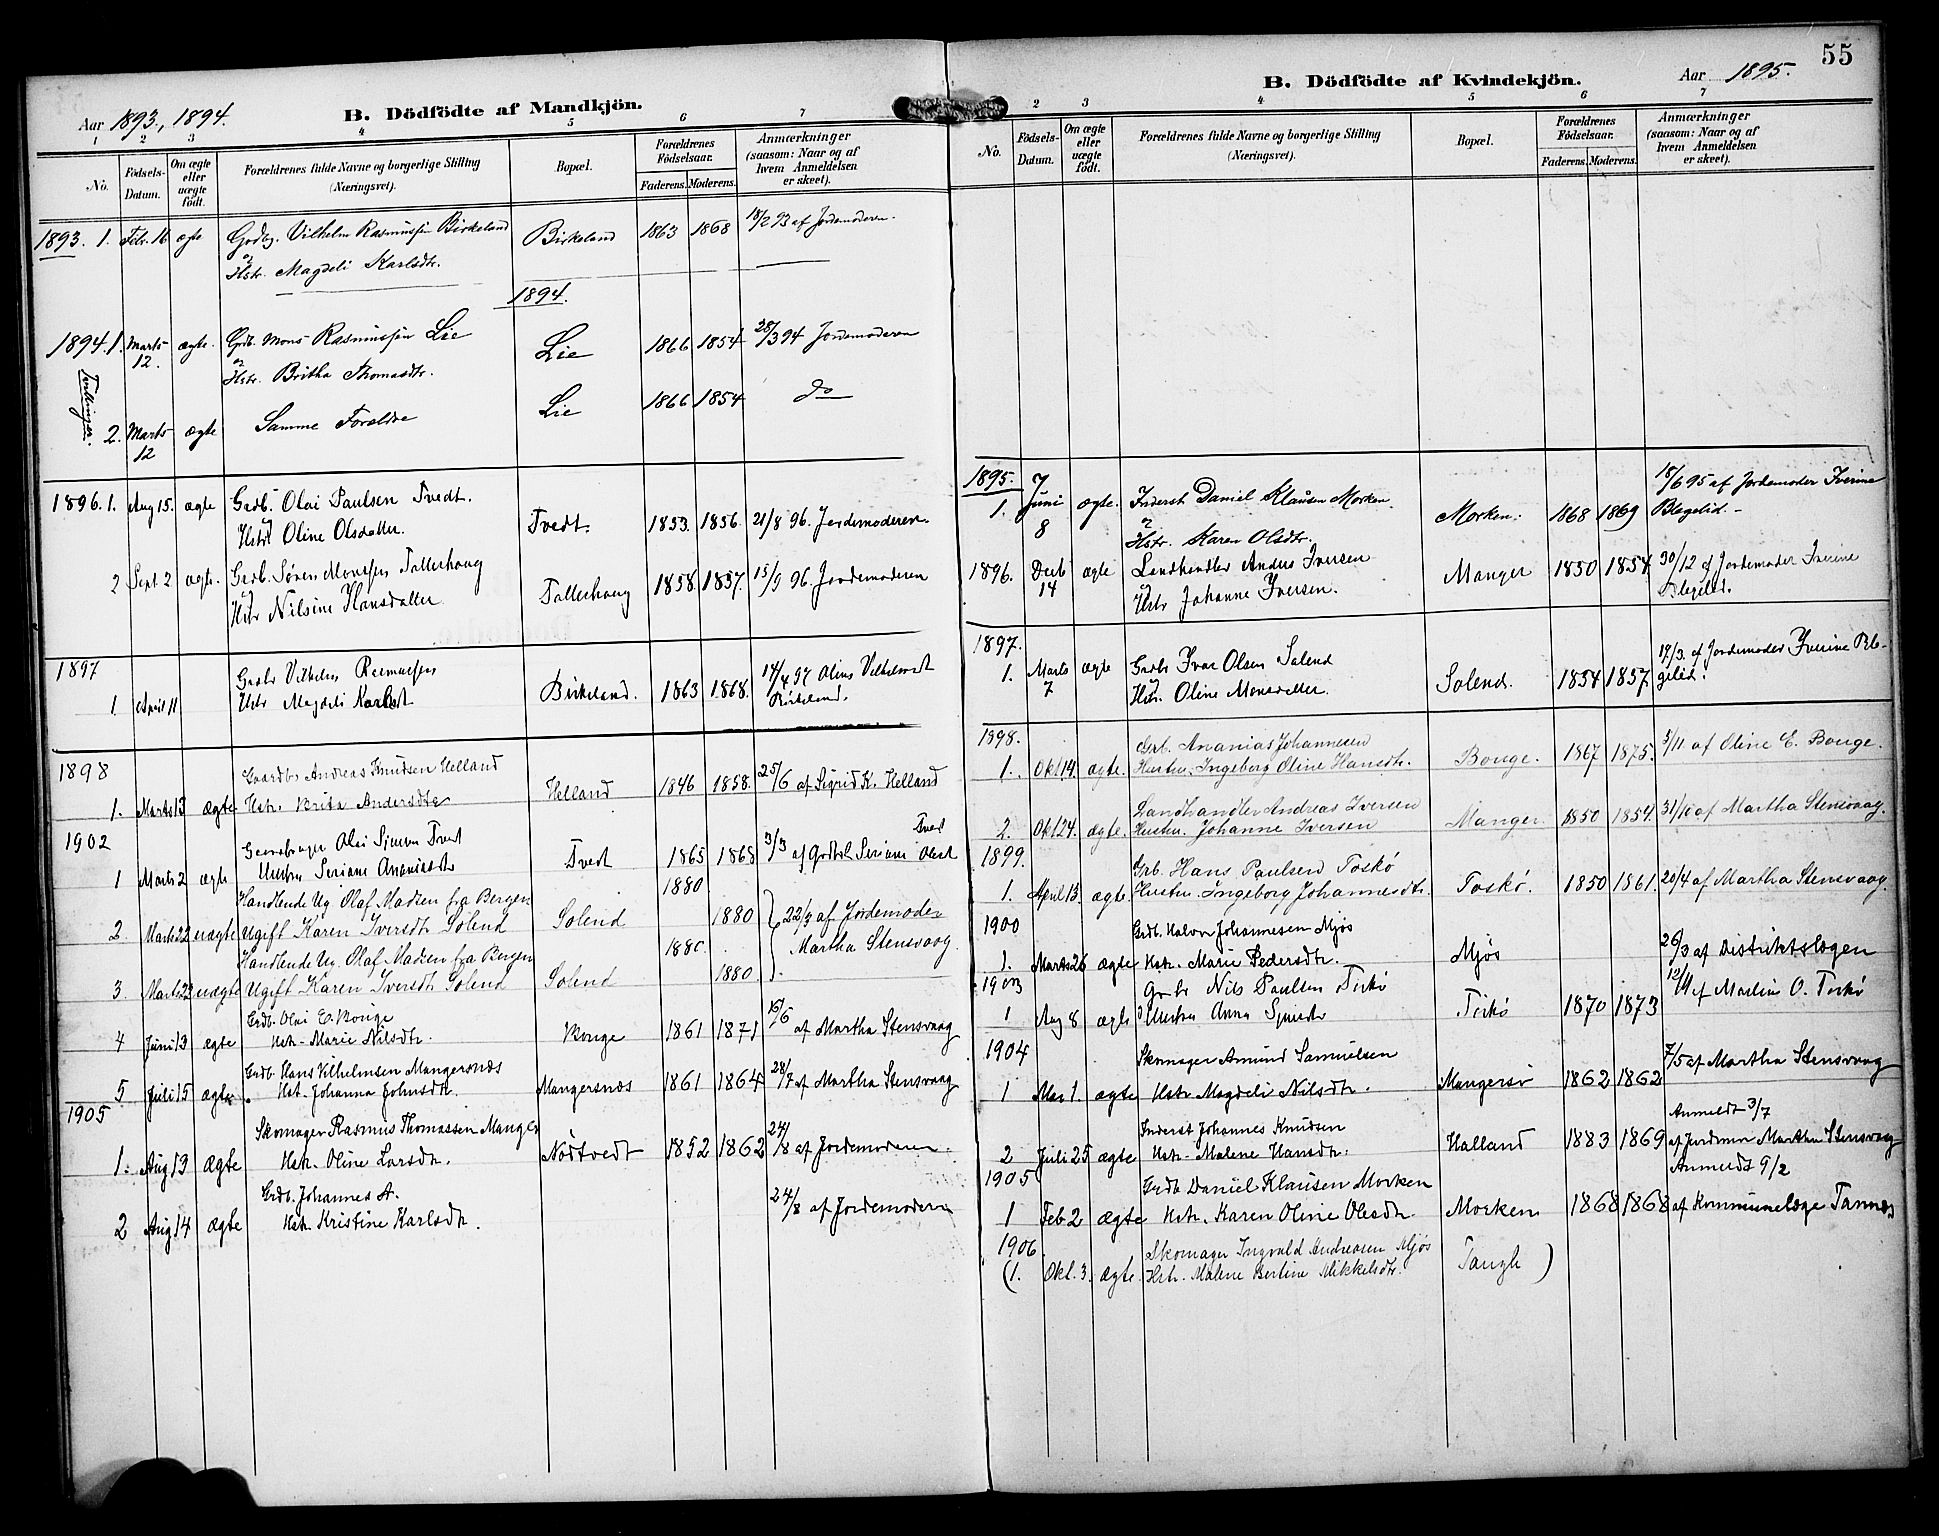 Aar 1893, 1894.
B. Dödfödte af Mandkjön.
1 2 3 4 5 6 7
No.
Födsels-Datum.
Om ægte eller uægte födt.
Forældrenes fulde Navne og borgerlige Stilling (Næringsvei).
Bopæl.
Forældrenes Födselsaar.
Faderens. Moderens.
Anmærkninger (saasom: Naar og af hvem Anmeldelsen er skeet).
1893. 1. Febr. 16 ægte Vilhelm Rasmussen Birkeland Birkeland 1863 1868 18/2 93 af Jordemoderen.
Hstr. Magdeli Karlsdtr.
1894.
1894. 1. Marts 12. ægte. Grdb. Mons Rasmussen Lie Lie 1866 1854 28/3 94 Jordemoderen
Hstr. Britha Thomasdtr.
Tvillinger.
2. Marts 12 ægte Samme Forældre Lie 1866 1854 do
1896. 1. Aug 15. ægte Grdb. Olai Paulsen Tvedt. Tvedt. 1853. 1856. 21/8 96. Jordemoderen.
Hstr Oline Olsdatter.
2 Sept. 2 ægte. Grdb. Søren Monssen Tollerhaug Tollerhaug 1858. 1857. 15/9 96. Jordemoderen
Hstr Nilsine Hansdatter
1897
1. April 11 Grdbr Vilhelm Rasmussen Birkeland. 1863 1868. 14/4 97 Vilhelmsdt Birkeland.
Hstr Magdeli Karlsdt
1898
1. Marts 13 ægte Gaardb. Andreas Knudsen Helland Helland 1846 1858. 25/6 af Sigrid K. Helland
Hstr. Brita Andersdtr
1902
1 Marts 2 ægte Olai Simon Tvedt Tvedt 1865 1868 3/3 af Seriane Tvedt
Hustru Seriane Ananiasdtr
2. Marts 22 uægte Handlende Ug. Olaf Madsen fra Bergen 1880
Ugift Karen Iversdtr Solend Solend 1880 22/3 af Jordemoder
Martha Stensvaag.
3. Marts 23 uægte Handlende Ug. Olaf Madsen fra Bergen 1880.
Ugift Karen Iversdtr Solend Solend 1880.
4 Juni 13 ægte Grdb. Olai E. Bonge Bonge 1861 1871 16/6 af Martha Stensvaag
Hstr. Marie Nilsdtr.
5 Juli 15 ægte Grdb. Hans Vilhelmsen Mangersnæs Mangersnæs 1861 1864 28/7 af Martha Stensvaag
Hst. Johanna Johnsdtr.
1905
1. Aug 19 ægte Skomager Rasmus Thomassen Manger Nödtvedt 1852 1862 24/8 af Jordemoderen.
Hstr. Oline Larsdtr.
2 Aug 14 ægte Grdb. Johannes A. 24/8 af Jordemoderen
Hstr. Kristine Karlsdtr.
55
B. Dödfödte af Kvindekjön.
Aar 1895.
2 3 4 5 6 7
No.
Födsels-Datum.
Om ægte eller uægte födt.
Forældrenes fulde Navne og borgerlige Stilling (Næringsvei).
Bopæl.
Forældrenes Födselsaar.
Faderens. Moderens.
Anmærkninger (saasom: Naar og af hvem Anmeldelsen er skeet).
1895.
1. Juni 8 ægte. Inderst Daniel Klausen Morken. Morken. 1868 1869 18/6 95 af Jordemoder Iverine Blegelid.
Hstr. Karen Olsdtr.
1896. Decb 14 ægte Landhandler Iversen Manger 1850 1854 30/12 af Jordemoder Iverine Blegelid.
Hstr Johanne Iversen.
1897.
1. Marts 7 ægte Grdbr Ivar Olsen Solend Solend. 1854 1857. 17/3. af Jordemoder Iverine Blegelid.
Hstr. Oline Monsdatter.
1898.
1. Okt. 14. ægte. Grb. Ananias Johannesen Bonge. 1867 1875. 5/11 af Oline E. Bonge.
Hustru. Ingeborg Oline Hansdtr.
2. Okt 24. ægte. Landhandler Andreas Iversen Manger. 1850 1854. 31/10 af Martha Stensvaag.
Hustru. Johanne Iversen
1899.
1. April 13. ægte. Grb. Hans Paulsen Toskö Toskö. 1850 1861. 20/4 af Martha Stensvaag.
Hustru. Ingeborg Johannesdtr.
1900
1. Marts 26 ægte Grdb. Halvor Johannesen Mjøs Mjøs 26/3 af Distriktslægen
Hstr. Marie Pedersdtr.
1903
1 Aug 8 ægte Nils Paulsen Toskö Toskö 1870 1873 12/11 af Martin O. Toskö
Hustru Anna
1904
1 Mai 1. ægte Skomager Amund Samuelsen Mangersö 1862 1862 7/5 af Martha Stensvaag
Hstr. Magdeli Nilsdtr.
2 Juli 25 ægte Inderst Johannes Knudsen Halland 1883 1869 Anmeldt 3/7
Hstr. Malene Hansdtr. af Jordemor Martha Stensvaag
1905
1 Feb 2 ægte Grdb Daniel Klausen Morken Morken 1868 1868 Anmeldt 9/2
Hstr. Karen Oline Olesdtr. af Kommunelæge Tannæs
1906
(1. Okt. 3. ægte. Skomager Ingvald Andreasen Mjøs
Hstr. Malene Bertine Mikkelsdtr. )